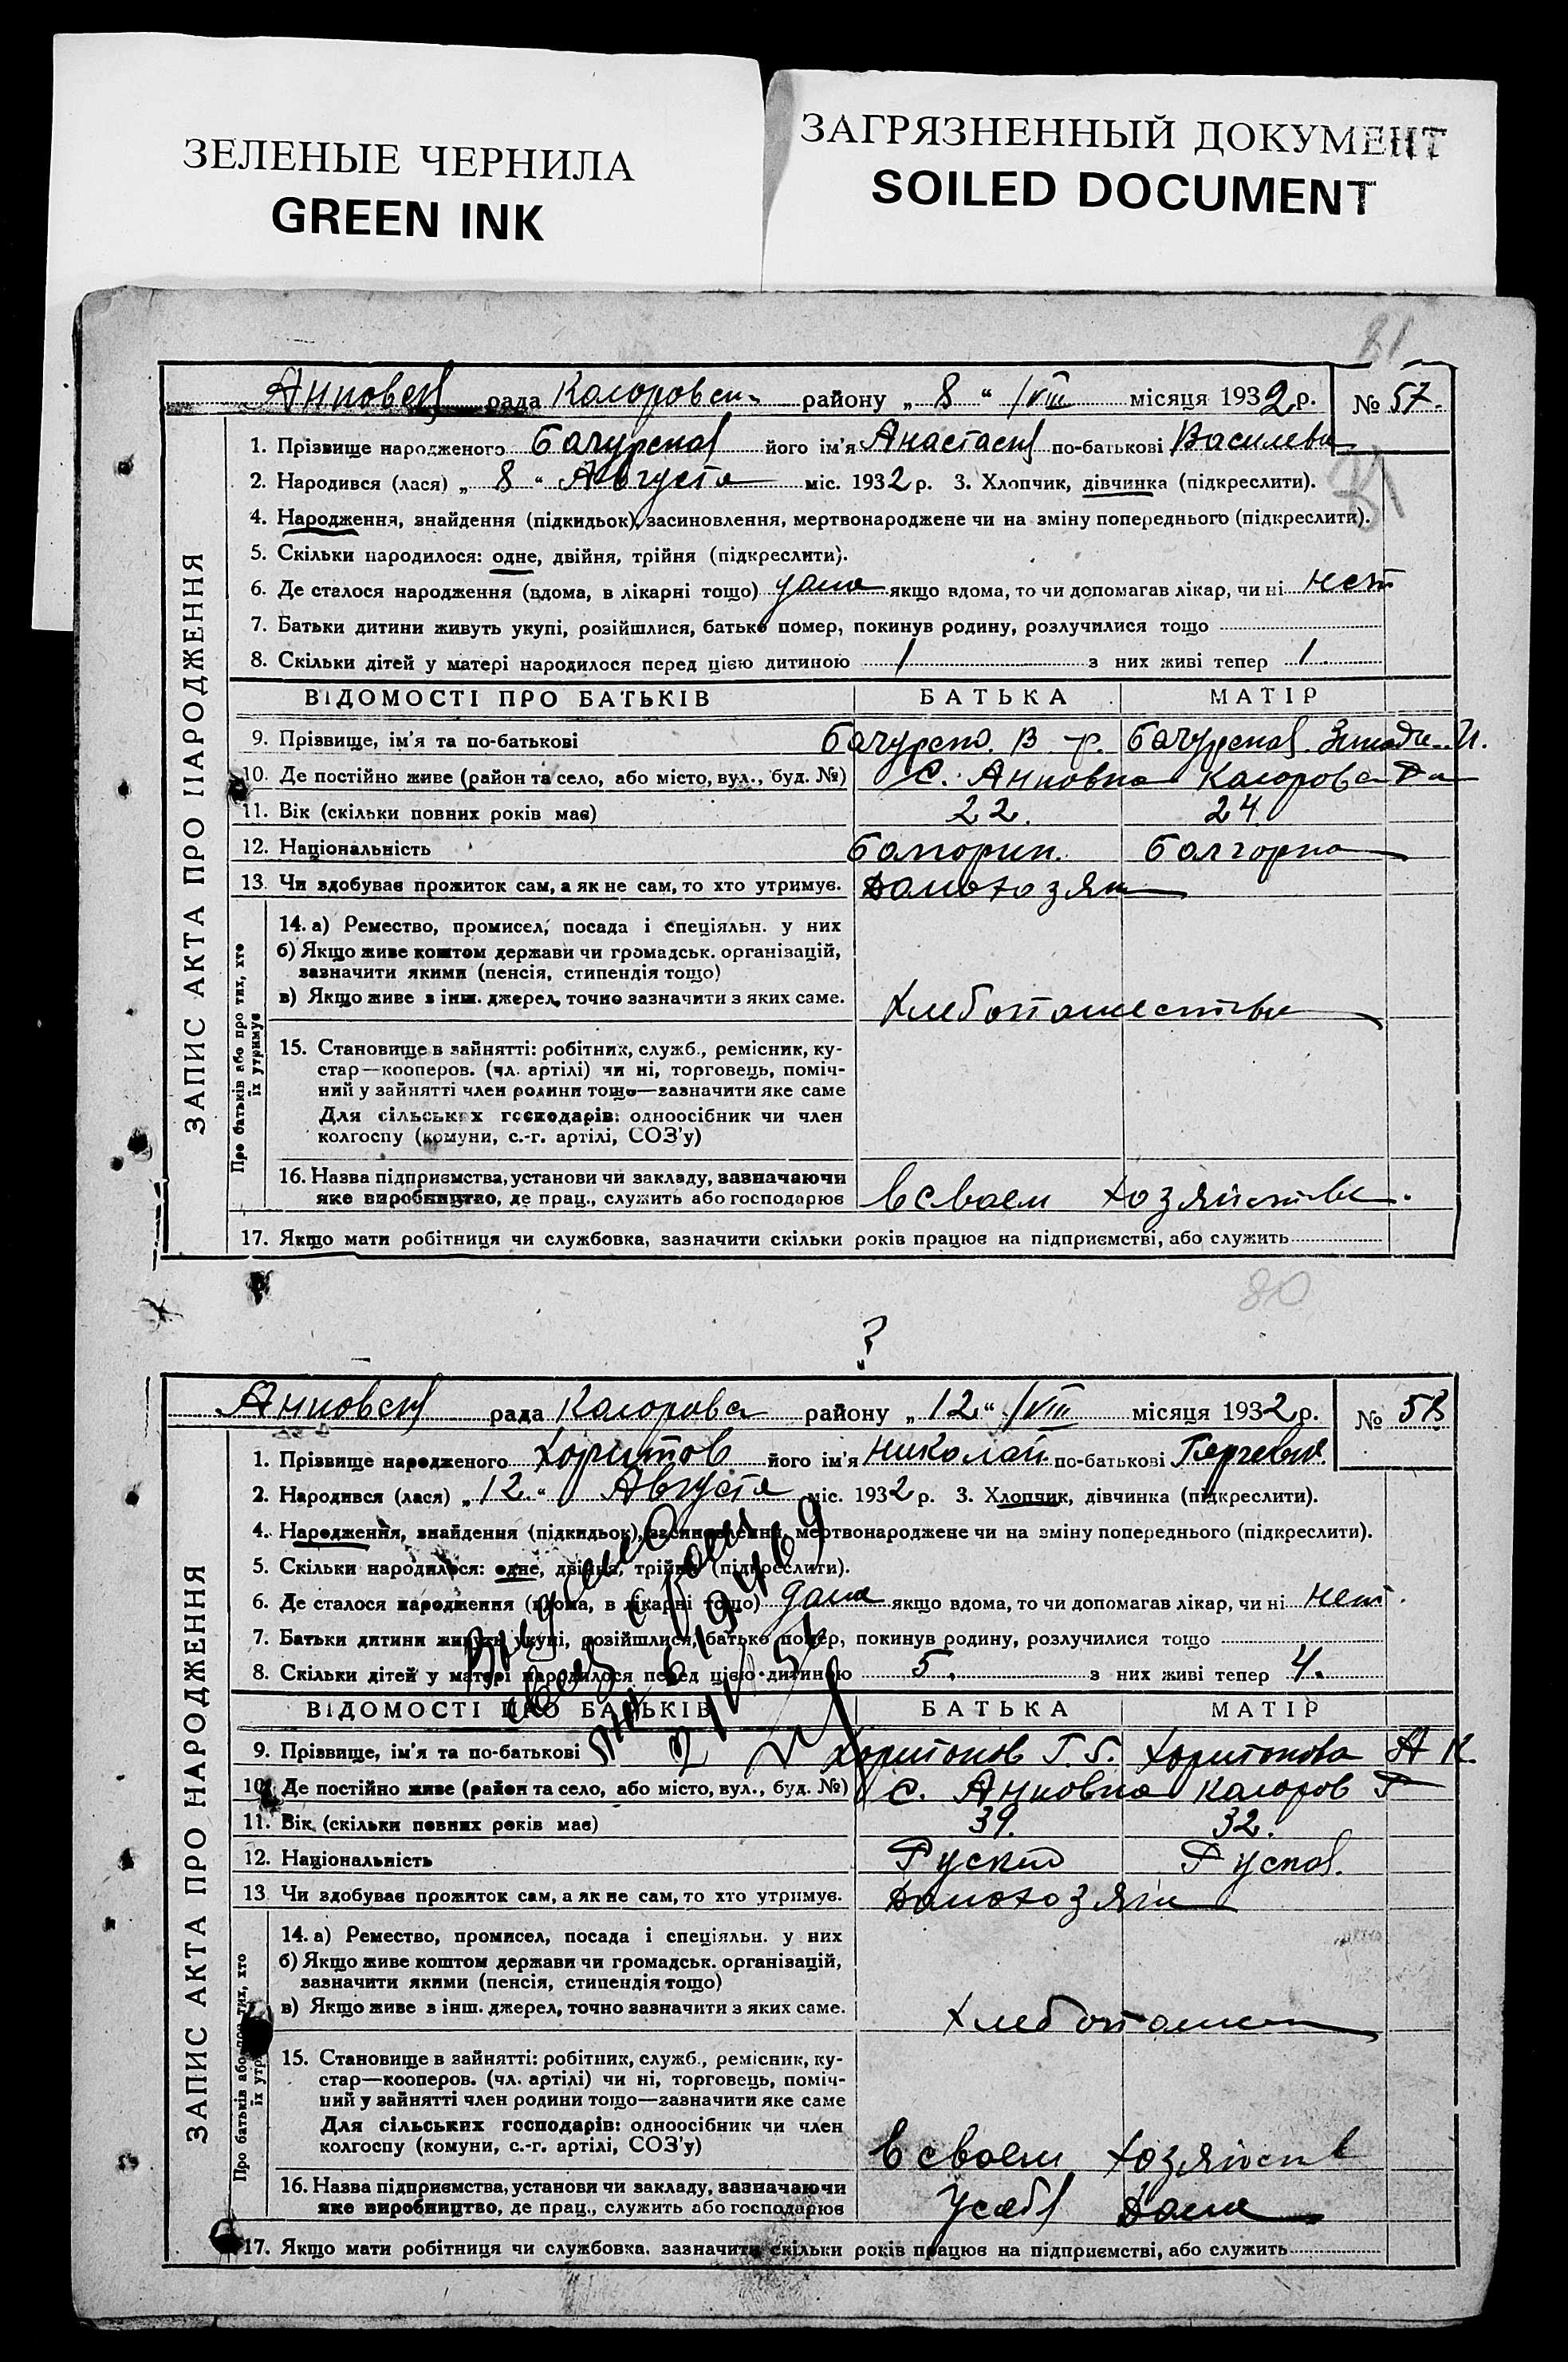 ЗЕЛЕНЫЕ ЧЕРНИЛА
GREEN INK
ЗАГРЯЗНЕННЫЙ ДОКУМЕНТ
SOILED DOCUMENT
81
рада района „ 8 “ /VIII місяця 1932 р. № 57.
ЗАПИС АКТА ПРО НАРОДЖЕННЯ
1. Прізвище народженого його ім'я Анастасия по-батькові Василевна
2. Народився (лася) „ 8 “ Августа міс. 1932 р. 3. Хлопчик, дівчинка (підкреслити).
4. Народження, знайдення (підкидьок), засиновлення, мертвонароджене чи на зміну попереднього (підкреслити).
5. Скільки народилося: одне, двійня, трійня (підкреслити).
6. Де сталося народження (вдома, в лікарні тощо) дома якщо вдома, то чи допомагав лікар, чи ні нет
7. Батьки дитини живуть укупі, розійшлися, батько помер, покинув родину, розлучилися тощо
8. Скільки дітей у матері народилося перед цією дитиною 1 з них живі тепер 1.
ВІДОМОСТІ ПРО БАТЬКІВ БАТЬКА МАТІР
9. Прізвище, ім'я та по-батькові
10. Де постійно живе (район та село, або місто, вул., буд. №) С. Анновка
11. Вік (скільки повних років має) 22. 24
12. Національність Болгорин. Болгорка
13. Чи здобуває прожиток сам, а як не сам, то хто утримує. Домохозяин
Про батьків або про тих, хто їх утримує
14. а) Ремество, промисел, посада і спеціяльн. у них
б) Якщо живе коштом держави чи громадськ. організацій,
зазначити якими (пенсія, стипендія тощо)
в) Якщо живе з інш. джерел, точно зазначити з яких саме. Хлебопашество
15. Становище в зайнятті: робітник, служб., ремісник, ку-
стар—кооперов. (чл. артілі) чи ні, торговець, поміч-
ний у зайнятті член родини тощо—зазначити яке саме
Для сільських господарів: одноосібник чи член
колгоспу (комуни, с.-г. артілі, СОЗ'у)
16. Назва підприємства, установи чи закладу, зазначаючи
яке виробництво, де прац., служить або господарює в своем хозяйстве.
17. Якщо мати робітниця чи службовка, зазначити скільки років працює на підприємстві, або служить
80
?
рада района „ 12 “ /VIII місяця 1932 р. № 58
ЗАПИС АКТА ПРО НАРОДЖЕННЯ
1. Прізвище народженого його ім'я Николай по-батькові
2. Народився (лася) „ 12. “ Августа міс. 1932 р. 3. Хлопчик, дівчинка (підкреслити).
4. Народження, знайдення (підкидьок), засиновлення, мертвонароджене чи на зміну попереднього (підкреслити).
5. Скільки народилося: одне, двійня, трійня (підкреслити).
6. Де сталося народження (вдома, в лікарні тощо) дома якщо вдома, то чи допомагав лікар, чи ні нет.
7. Батьки дитини живуть укупі, розійшлися, батько помер, покинув родину, розлучилися тощо
8. Скільки дітей у матері народилося перед цією дитиною 5. з них живі тепер 4.
ВІДОМОСТІ ПРО БАТЬКІВ БАТЬКА МАТІР
9. Прізвище, ім'я та по-батькові Харитонов Харитонова А К.
10. Де постійно живе (район та село, або місто, вул., буд. №) С. Анновка
11. Вік (скільки повних років має) 39. 32.
12. Національність Руский Руская.
13. Чи здобуває прожиток сам, а як не сам, то хто утримує. Домохозяин
Про батьків або про тих, хто їх утримує
14. а) Ремество, промисел, посада і спеціяльн. у них
б) Якщо живе коштом держави чи громадськ. організацій,
зазначити якими (пенсія, стипендія тощо)
в) Якщо живе з інш. джерел, точно зазначити з яких саме.
15. Становище в зайнятті: робітник, служб., ремісник, ку-
стар—кооперов. (чл. артілі) чи ні, торговець, поміч-
ний у зайнятті член родини тощо—зазначити яке саме
Для сільських господарів: одноосібник чи член
колгоспу (комуни, с.-г. артілі, СОЗ'у) в своем хозяйств
16. Назва підприємства, установи чи закладу, зазначаючи
яке виробництво, де прац., служить або господарює У себя дома
17. Якщо мати робітниця чи службовка, зазначити скільки років працює на підприємстві, або служить